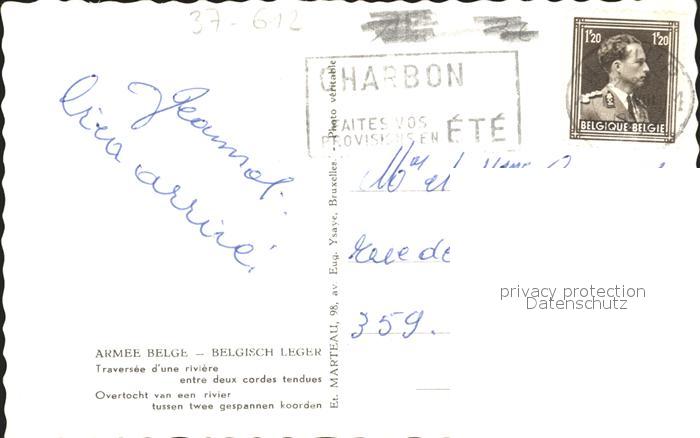 37-612
CHARBON
FAITES VOS
PROVISIONS EN ÉTÉ
1F20 1F20
BELGIQUE·BELGIE
Jeannot.
bien arrivé.
Rue de
359.
privacy protection
Datenschutz
ARMEE BELGE — BELGISCH LEGER
Traversée d'une rivière
entre deux cordes tendues
Overtocht van een rivier
tussen twee gespannen koorden
Et. MARTEAU, 98, av. Eug. Ysaye, Bruxelles. - Photo véritable